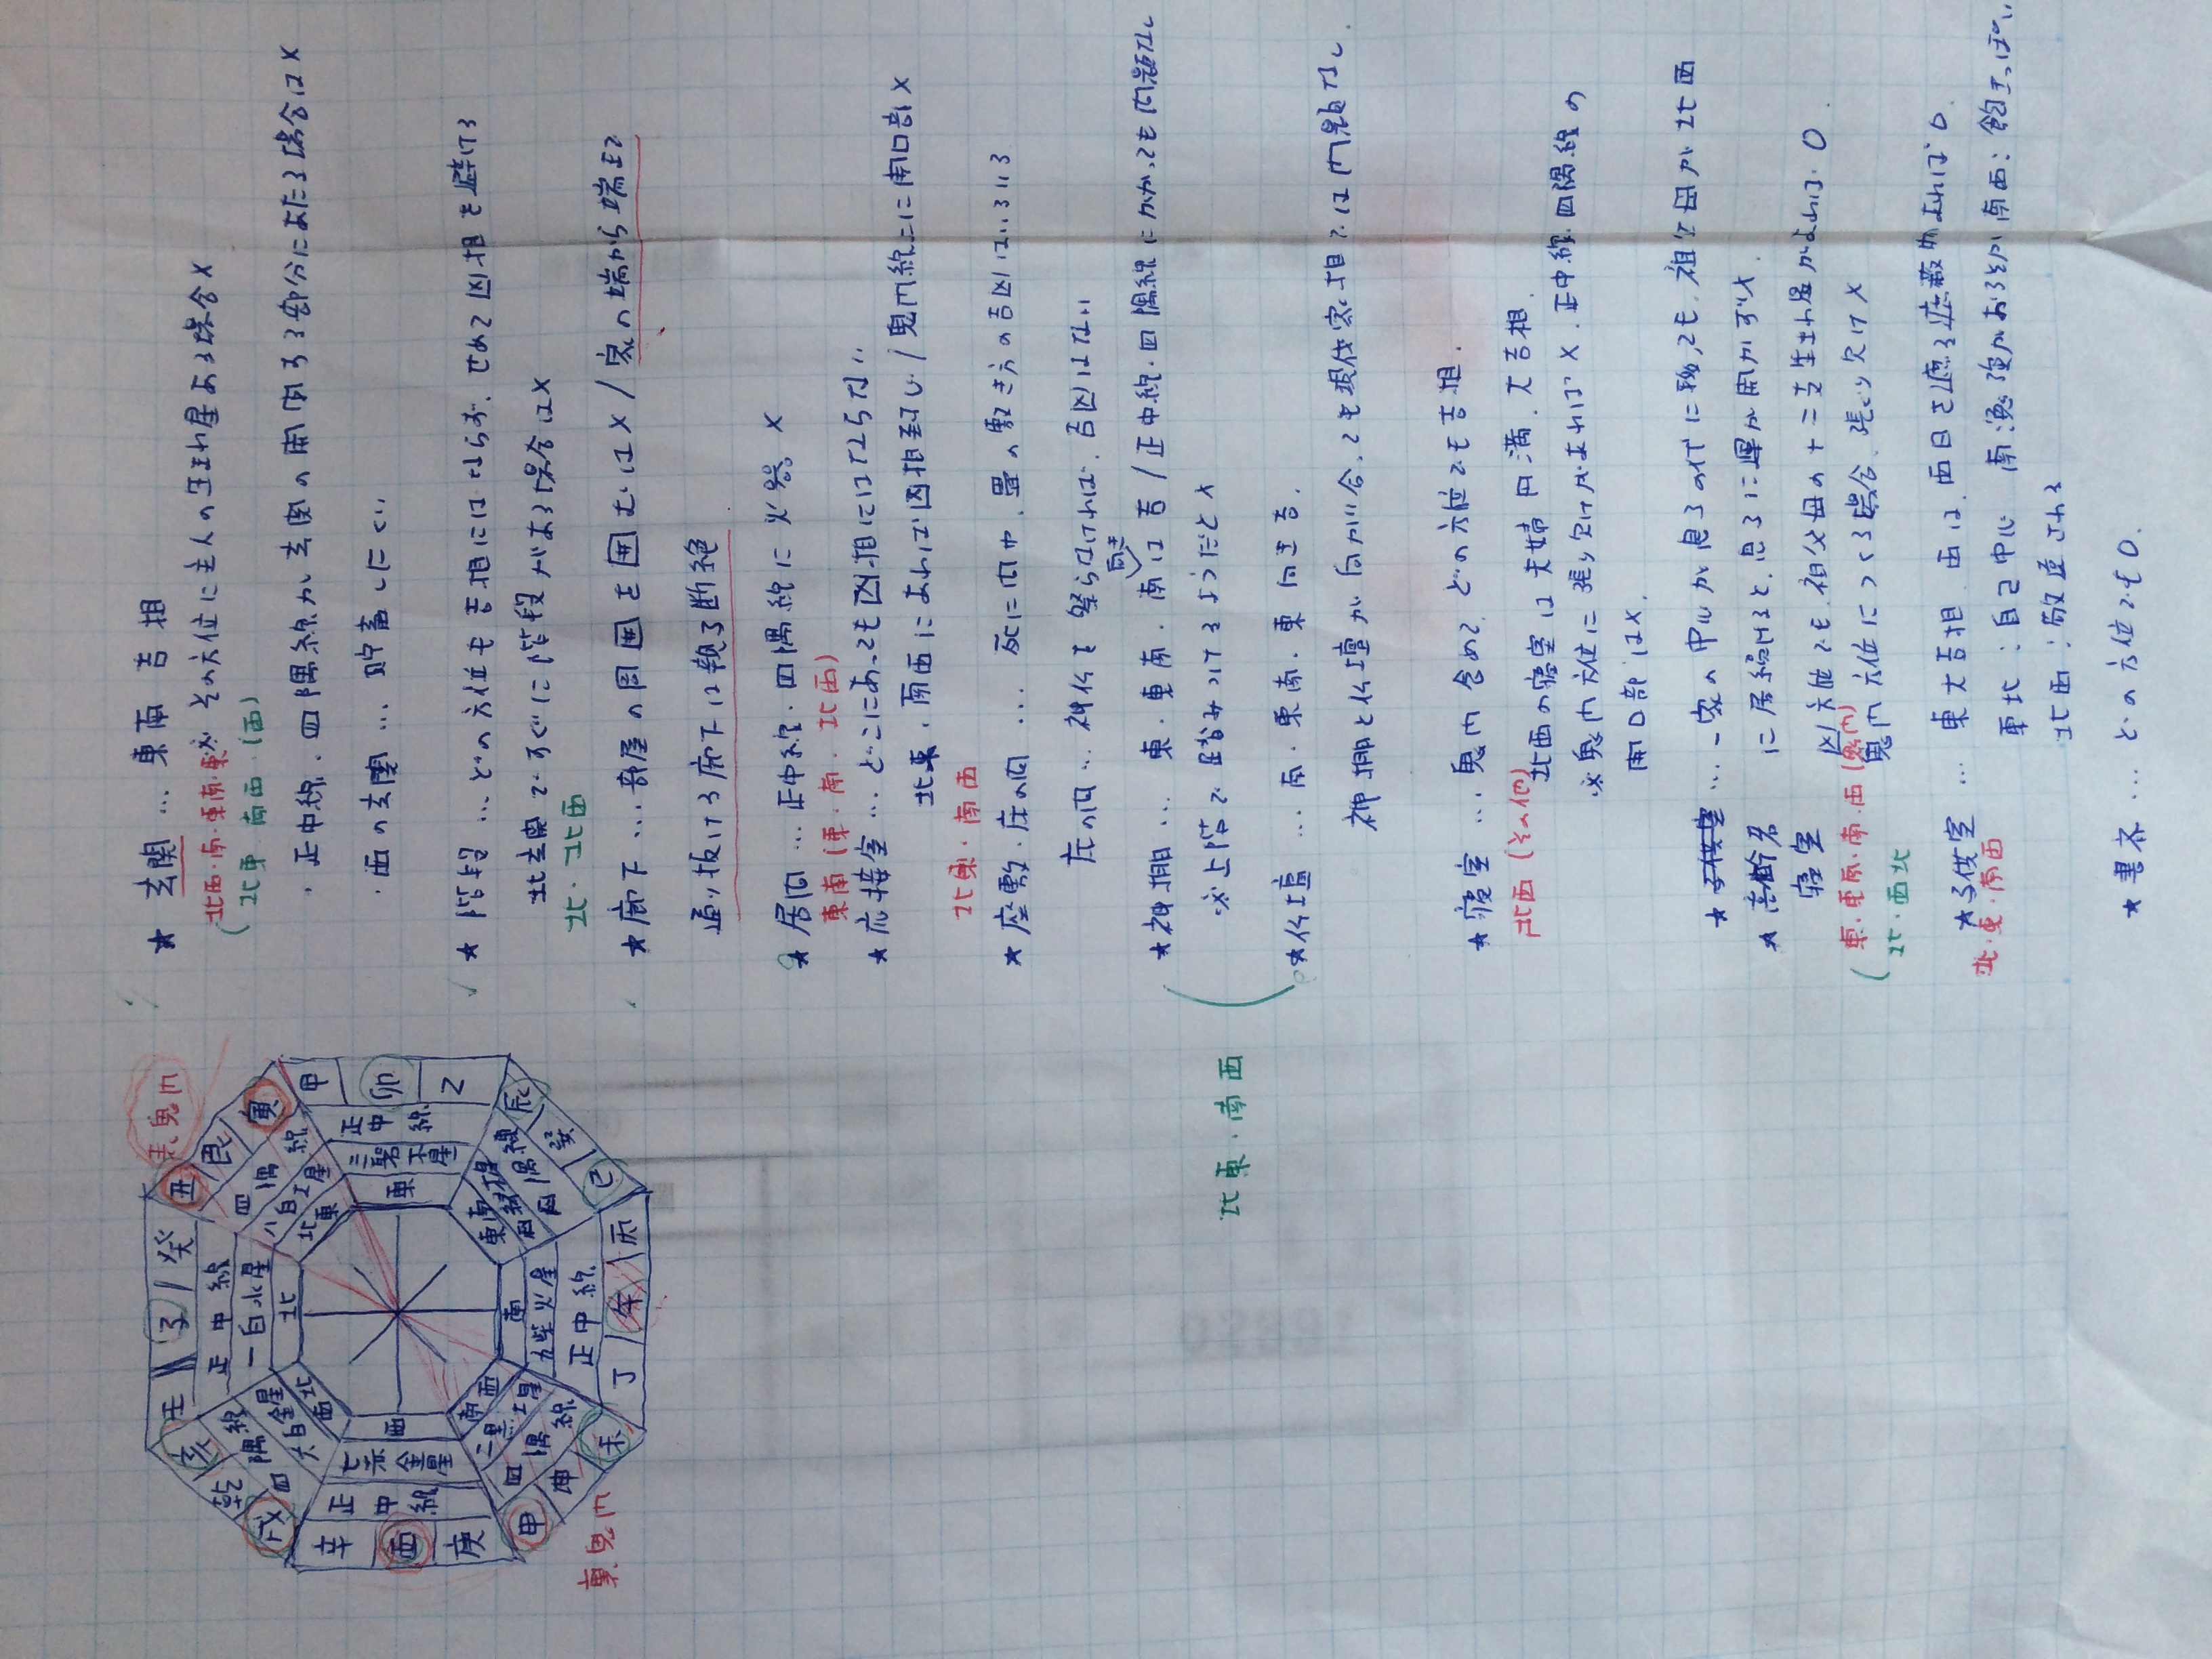 表鬼門
壬 子 癸
丑 艮 寅
甲 卯 乙
辰 巽 巳
丙 午 丁
未 坤 申
庚 酉 辛
戌 乾 亥
正中線
一白水星
北
四隅線
八白土星
北東
正中線
三碧木星
東
四隅線
四緑木星
東南
正中線
九紫火星
南
四隅線
二黒土星
南西
正中線
七赤金星
西
四隅線
六白金星
西北
裏鬼門
★ 玄関 … 東南 吉相
※その方位に主人の生まれ星ある場合×
北西・南・東南・東
(北東 南西・(西)
・正中線・四隅線が玄関の開閉する部分にあたる場合は×
・西の玄関 … 貯蓄しにくい
★ 階段 … どの方位も吉相にはならず、せめて凶相を避ける
北玄関ですぐに階段がある場合は×
北・北西
★ 廊下 … 部屋の周囲を囲むは× / 家の端から端まで
通り抜ける廊下は親子断絶
★ 居間 … 正中線・四隅線に火器 ×
東南 (東・南・北西)
★ 応接室 … どこにあっても凶相にはならない
北東・南西にあれば凶相封じ / 鬼門線上に開口部×
北東・南西
★ 座敷・床の間 … 死に間や、畳の敷き方の吉凶はいろいろ
床の間 … 神仏を祭らなければ、吉凶はない
★ 神棚 … 東・東南・南向きは吉 / 正中線・四隅線にかかっても問題なし
※上階で踏みつけるようだと×
★ 仏壇 … 南・東南・東向き吉.
神棚と仏壇が向かい合っても現代家相では問題なし
北東・南西
★ 寝室 … 鬼門含めて、どの方位でも吉相.
北西 (その他)
北西の寝室は夫婦円満、大吉相.
※鬼門方位に張り欠けがあれば×、正中線・四隅線の
開口部は×.
★ 子供室 … 一家の中心が息子の代に移っても、祖父母が北西
★ 高齢者 に居続けると、息子に運が開かず×.
寝室 凶方位でも、祖父母の十二支生まれ星がよければ○.
鬼門方位につくる場合、張り欠け×
東・東南・南・西 (鬼門)
(北・西北
★ 子供室 … 東大吉相. 西は、西日を遮る遮蔽物あれば○.
北・東・南西
東北:自己中心
北西:敬遠される
★ 書斎 … どの方位でも○.